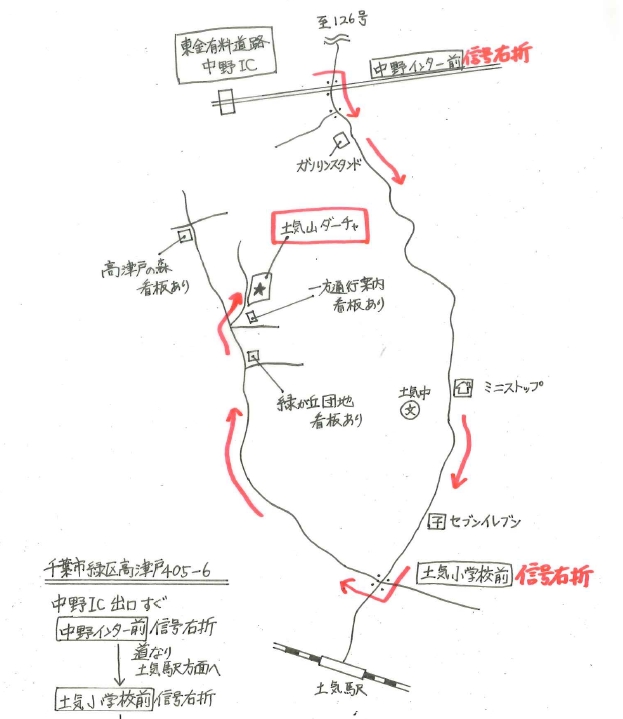 至126号
東金有料道路
中野IC
中野インター前 信号右折
ガソリンスタンド
土気山ダーチャ
高津戸の森
看板あり
一方通行案内
看板あり
緑が丘団地
看板あり
土気中
文
ミニストップ
セブンイレブン
土気小学校前 信号右折
土気駅
千葉市緑区高津戸405-6
中野IC 出口すぐ
中野インター前 信号右折
道なり
土気駅方面へ
土気小学校前 信号右折